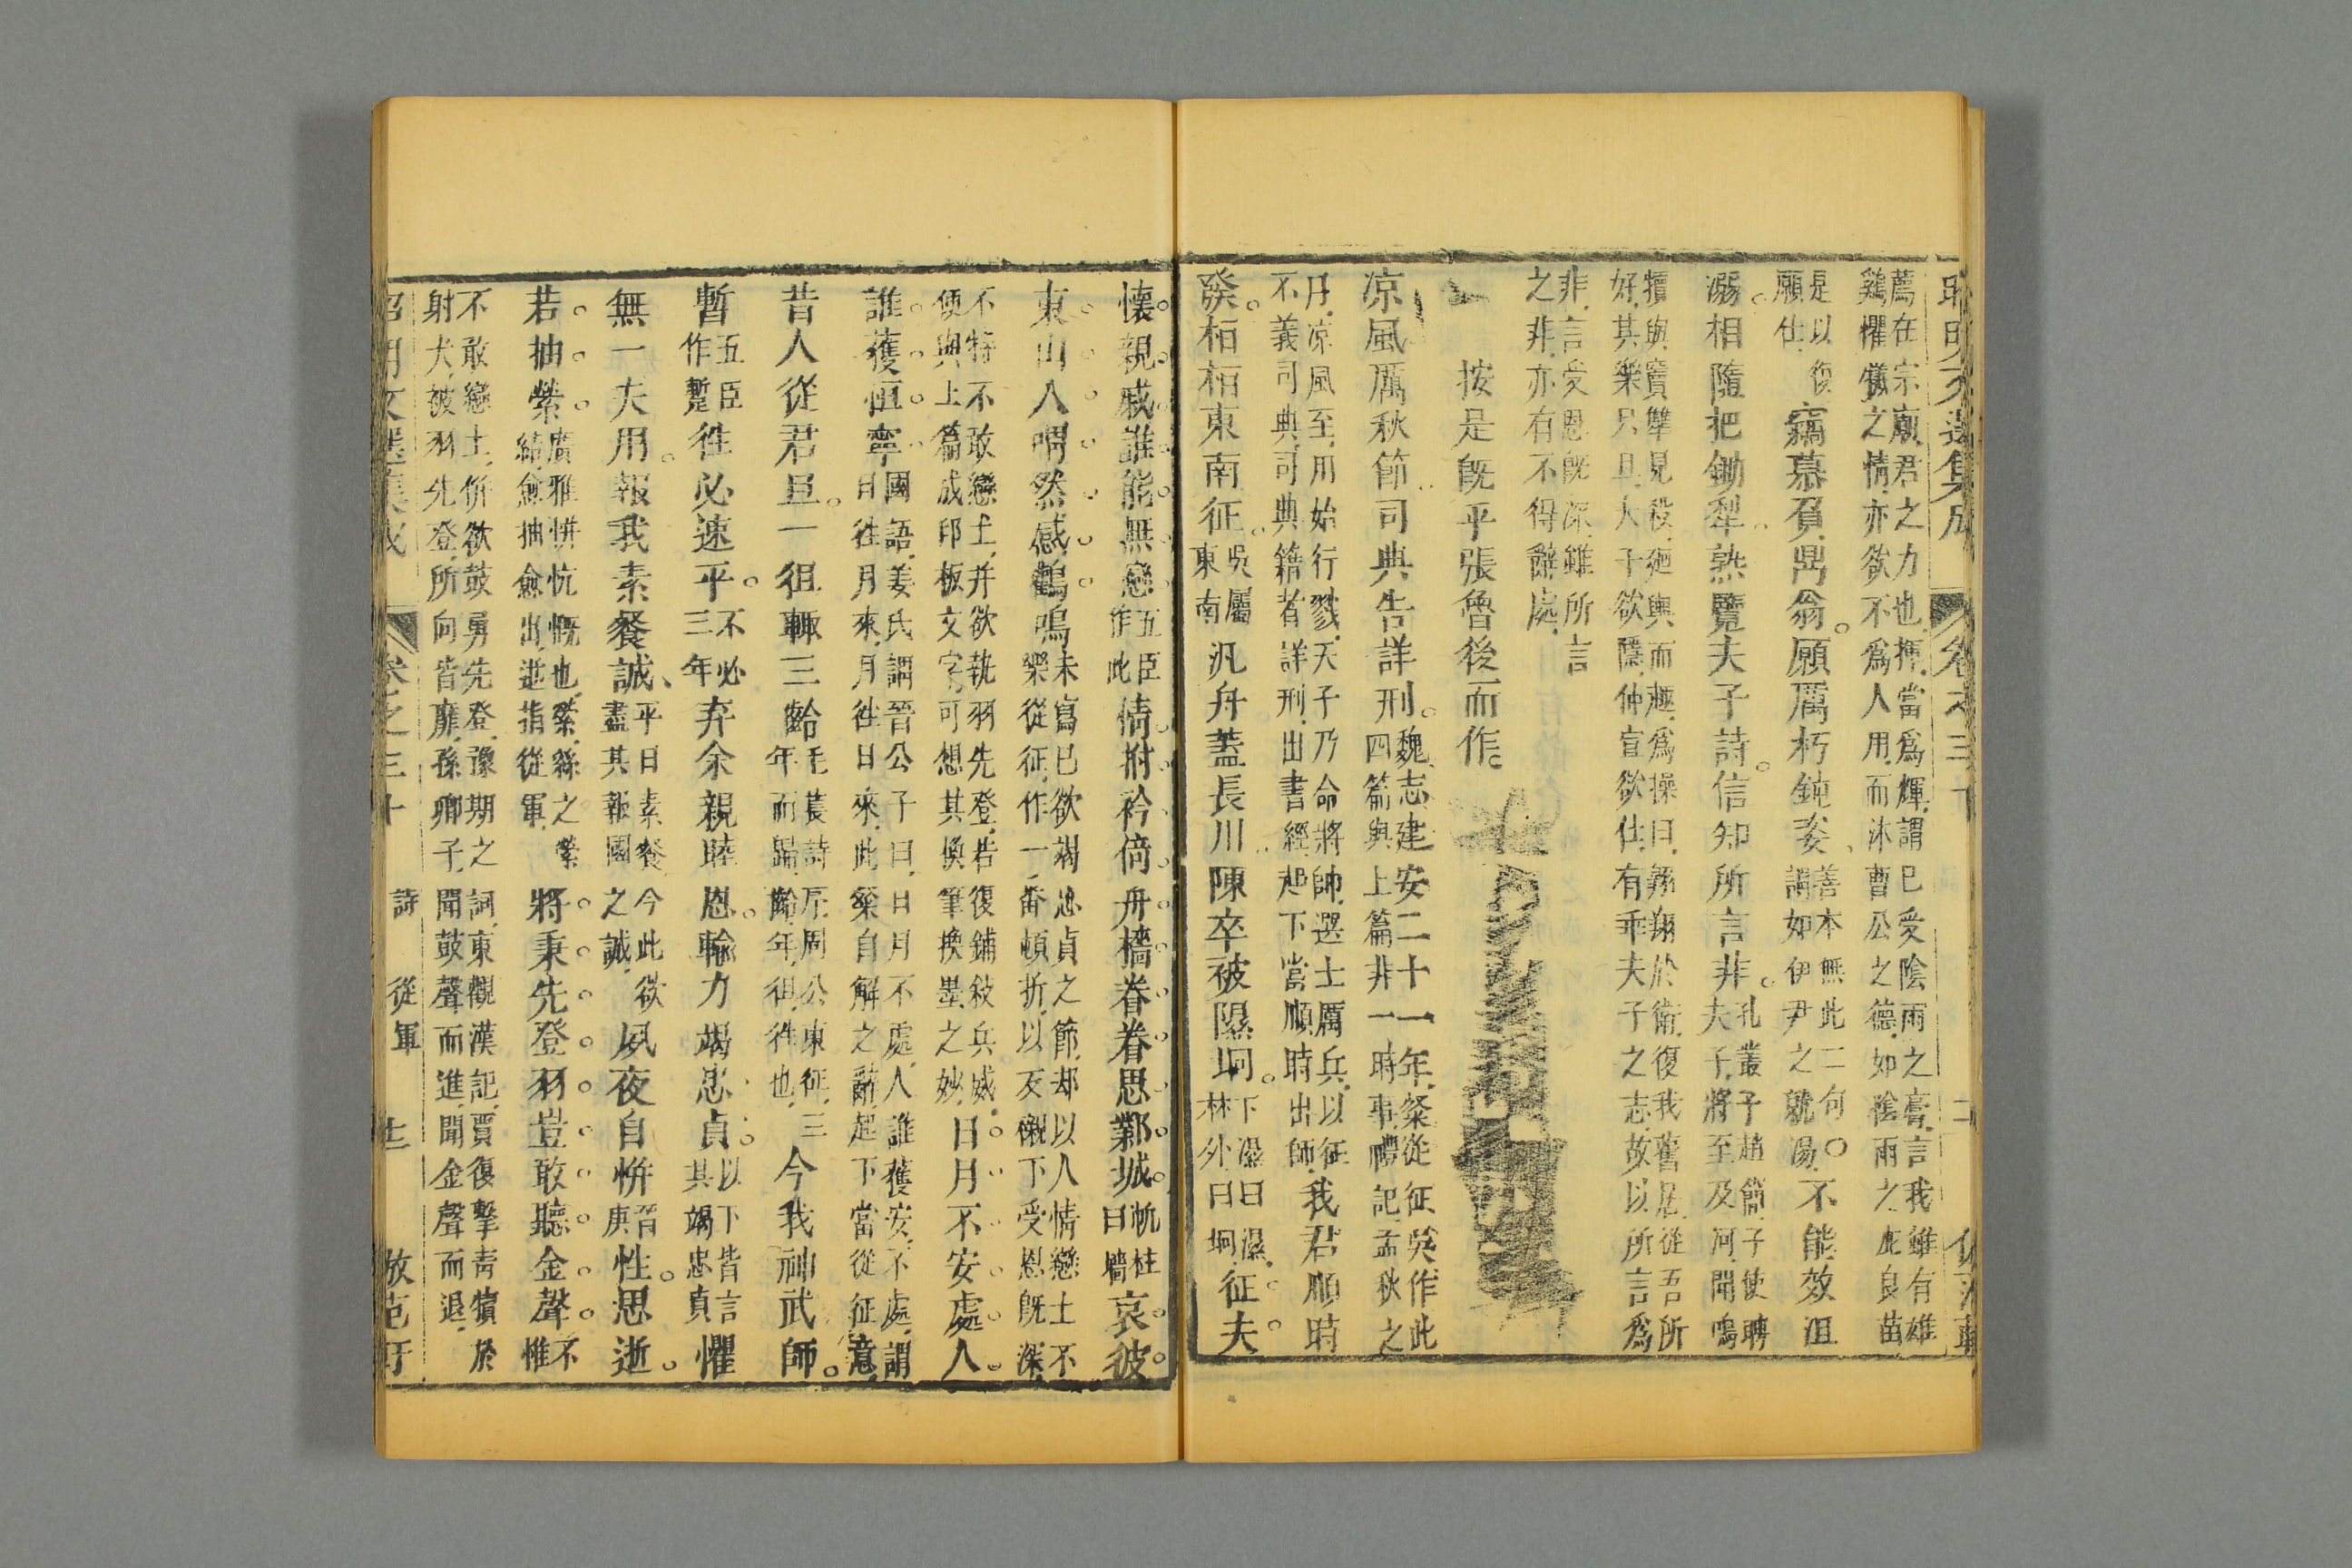 昭明文選集成 卷之三十 二
薦在宗廟君之力也揮當爲輝謂已受陰雨之膏言我雖有雄
鷄懼犧之情亦欲不爲人用而沐曹公之德如陰雨之庇良苗
是以復
願仕
竊慕負鼎翁願厲朽鈍姿
善本無此二句〇
謂如伊尹之就湯
不能效沮
溺相隨把鋤犂熟覽夫子詩信知所言非
孔叢子趙簡子使聘
夫子將至及河聞鳴
犢與竇犨見殺廻輿而趣爲操曰翱翔於衛復我舊居從吾所
好其樂只且夫子欲隱仲宣欲仕有乖夫子之志故以所言爲
非言受恩旣深雖所言
之非亦有不得辭處
按是旣平張魯後而作
凉風厲秋節司典告詳刑
魏志建安二十一年粲從征吳作此
四篇與上篇非一時事禮記孟秋之
月凉風至用始行戮天子乃命將帥選士厲兵以征
不義司典司典籍者詳刑出書經起下當順時出師
我君順時
發桓桓東南征
吳屬
東南
汎舟蓋長川陳卒被隰坰
下溼曰濕
林外曰坰
征夫
懷親戚誰能無戀
五臣
作此
情拊衿倚舟檣眷眷思鄴城
帆柱
曰檣
哀彼
東山人喟然感鸛鳴
未寫已欲竭忠貞之節却以人情戀土不
樂從征作一番頓折以反襯下受恩旣深
不特不敢戀土并欲執羽先登若復鋪敍兵威
便與上篇成印板文字可想其換筆換墨之妙
日月不安處人
誰獲恒寧
國語姜氏謂晉公子曰日月不處人誰獲安不處謂
日往月來月往日來此粲自解之辭起下當從征意
昔人從君旦一徂輙三齡
毛萇詩序周公東征三
年而歸齡年徂往也
今我神武師
暫
五臣
作蹔
往必速平
不必
三年
弃余親睦恩輸力竭忠貞
以下皆言
其竭忠貞
懼
無一夫用報我素餐誠
平日素餐今此欲
盡其報國之誠
夙夜自恲
音
庚
性思逝
若抽縈
廣雅恲忼慨也縈絲之縈
結愈抽愈出逝指從軍
將秉先登羽豈敢聽金聲
不
惟
不敢戀土倂欲鼓勇先登豫期之詞東觀漢記賈復擊靑犢於
射犬被羽先登所向皆靡孫卿子聞鼓聲而進聞金聲而退
昭明文選集成 卷之三十 詩 從軍